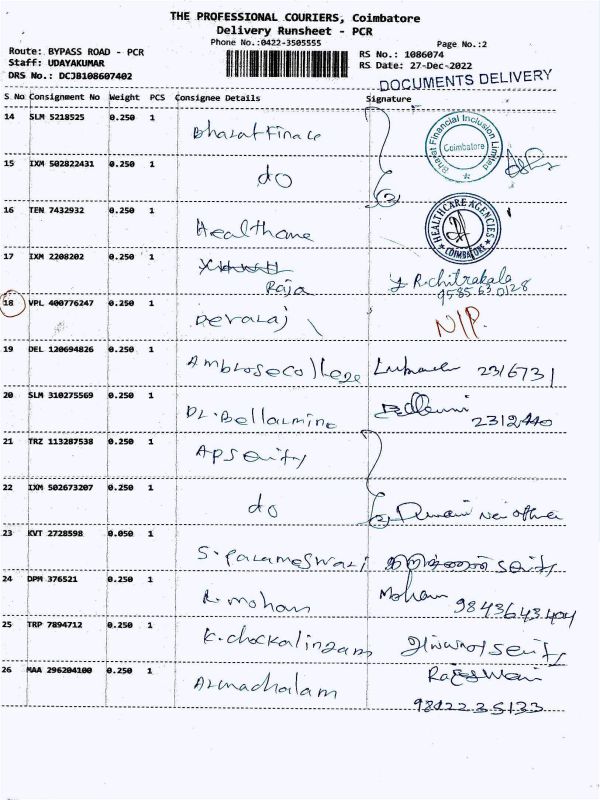 THE PROFESSIONAL COURIERS, Coimbatore
Delivery Runsheet - PCR
Phone No.:0422-3505555
Page No.:2
Route: BYPASS ROAD - PCR
RS No.: 1086074
Staff: UDAYAKUMAR
RS Date: 27-Dec-2022
DRS No.: DCJB108607402
DOCUMENTS DELIVERY
S.No Consignment No Weight PCS Consignee Details Signature
14 SLM 5218525 0.250 1 Bharat Finace
Bharat Financial Inclusion Limited
Coimbatore
15 IXM 502822431 0.250 1 do
(2)
16 TEN 7432932 0.250 1 Healthcare
HEALTHCARE AGENCIES
COIMBATORE
17 IXM 2208202 0.250 1
Raja R.chitrakala
9585630128
18 VPL 400776247 0.250 1 Devaraj N/P.
19 DEL 120694826 0.250 1 Ambrose college 2316731
20 SLM 310275569 0.250 1 Dr. Bellarmine
2312440
21 TRZ 113287538 0.250 1 AP Serify
22 IXM 502673207 0.250 1 do
(2)
23 KVT 2728598 0.050 1 S. Parameswari
24 DPM 376521 0.250 1 R. mohan Mohan
9843643404
25 TRP 7894712 0.250 1 K. chockalingam
26 MAA 296204100 0.250 1 Arunachalam Rajeswari